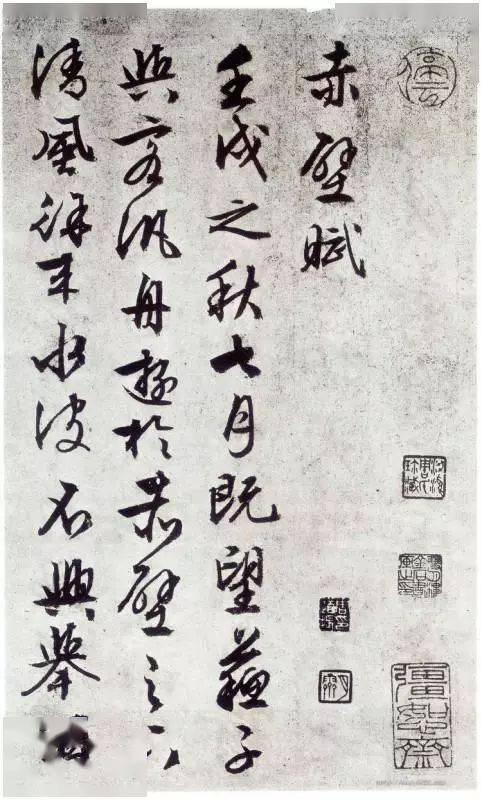 停云
赤壁賦
壬戌之秋七月既望蘇子
與客汎舟遊於赤壁之下
清風徐来水波不興舉